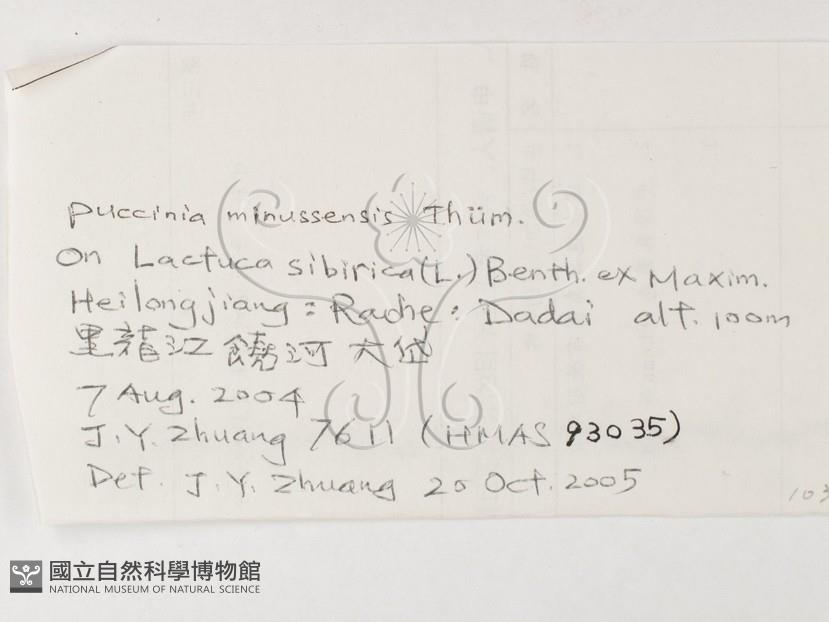 Puccinia minussensis Thüm.
On Lactuca sibirica (L.) Benth. ex Maxim.
Heilongjiang: Raohe: Dadai alt. 100m
黑龍江 饒河 大岱
7 Aug. 2004
J. Y. Zhuang 7611 (HMAS 93035)
Det. J. Y. Zhuang 20 Oct. 2005
103
國立自然科學博物館
NATIONAL MUSEUM OF NATURAL SCIENCE